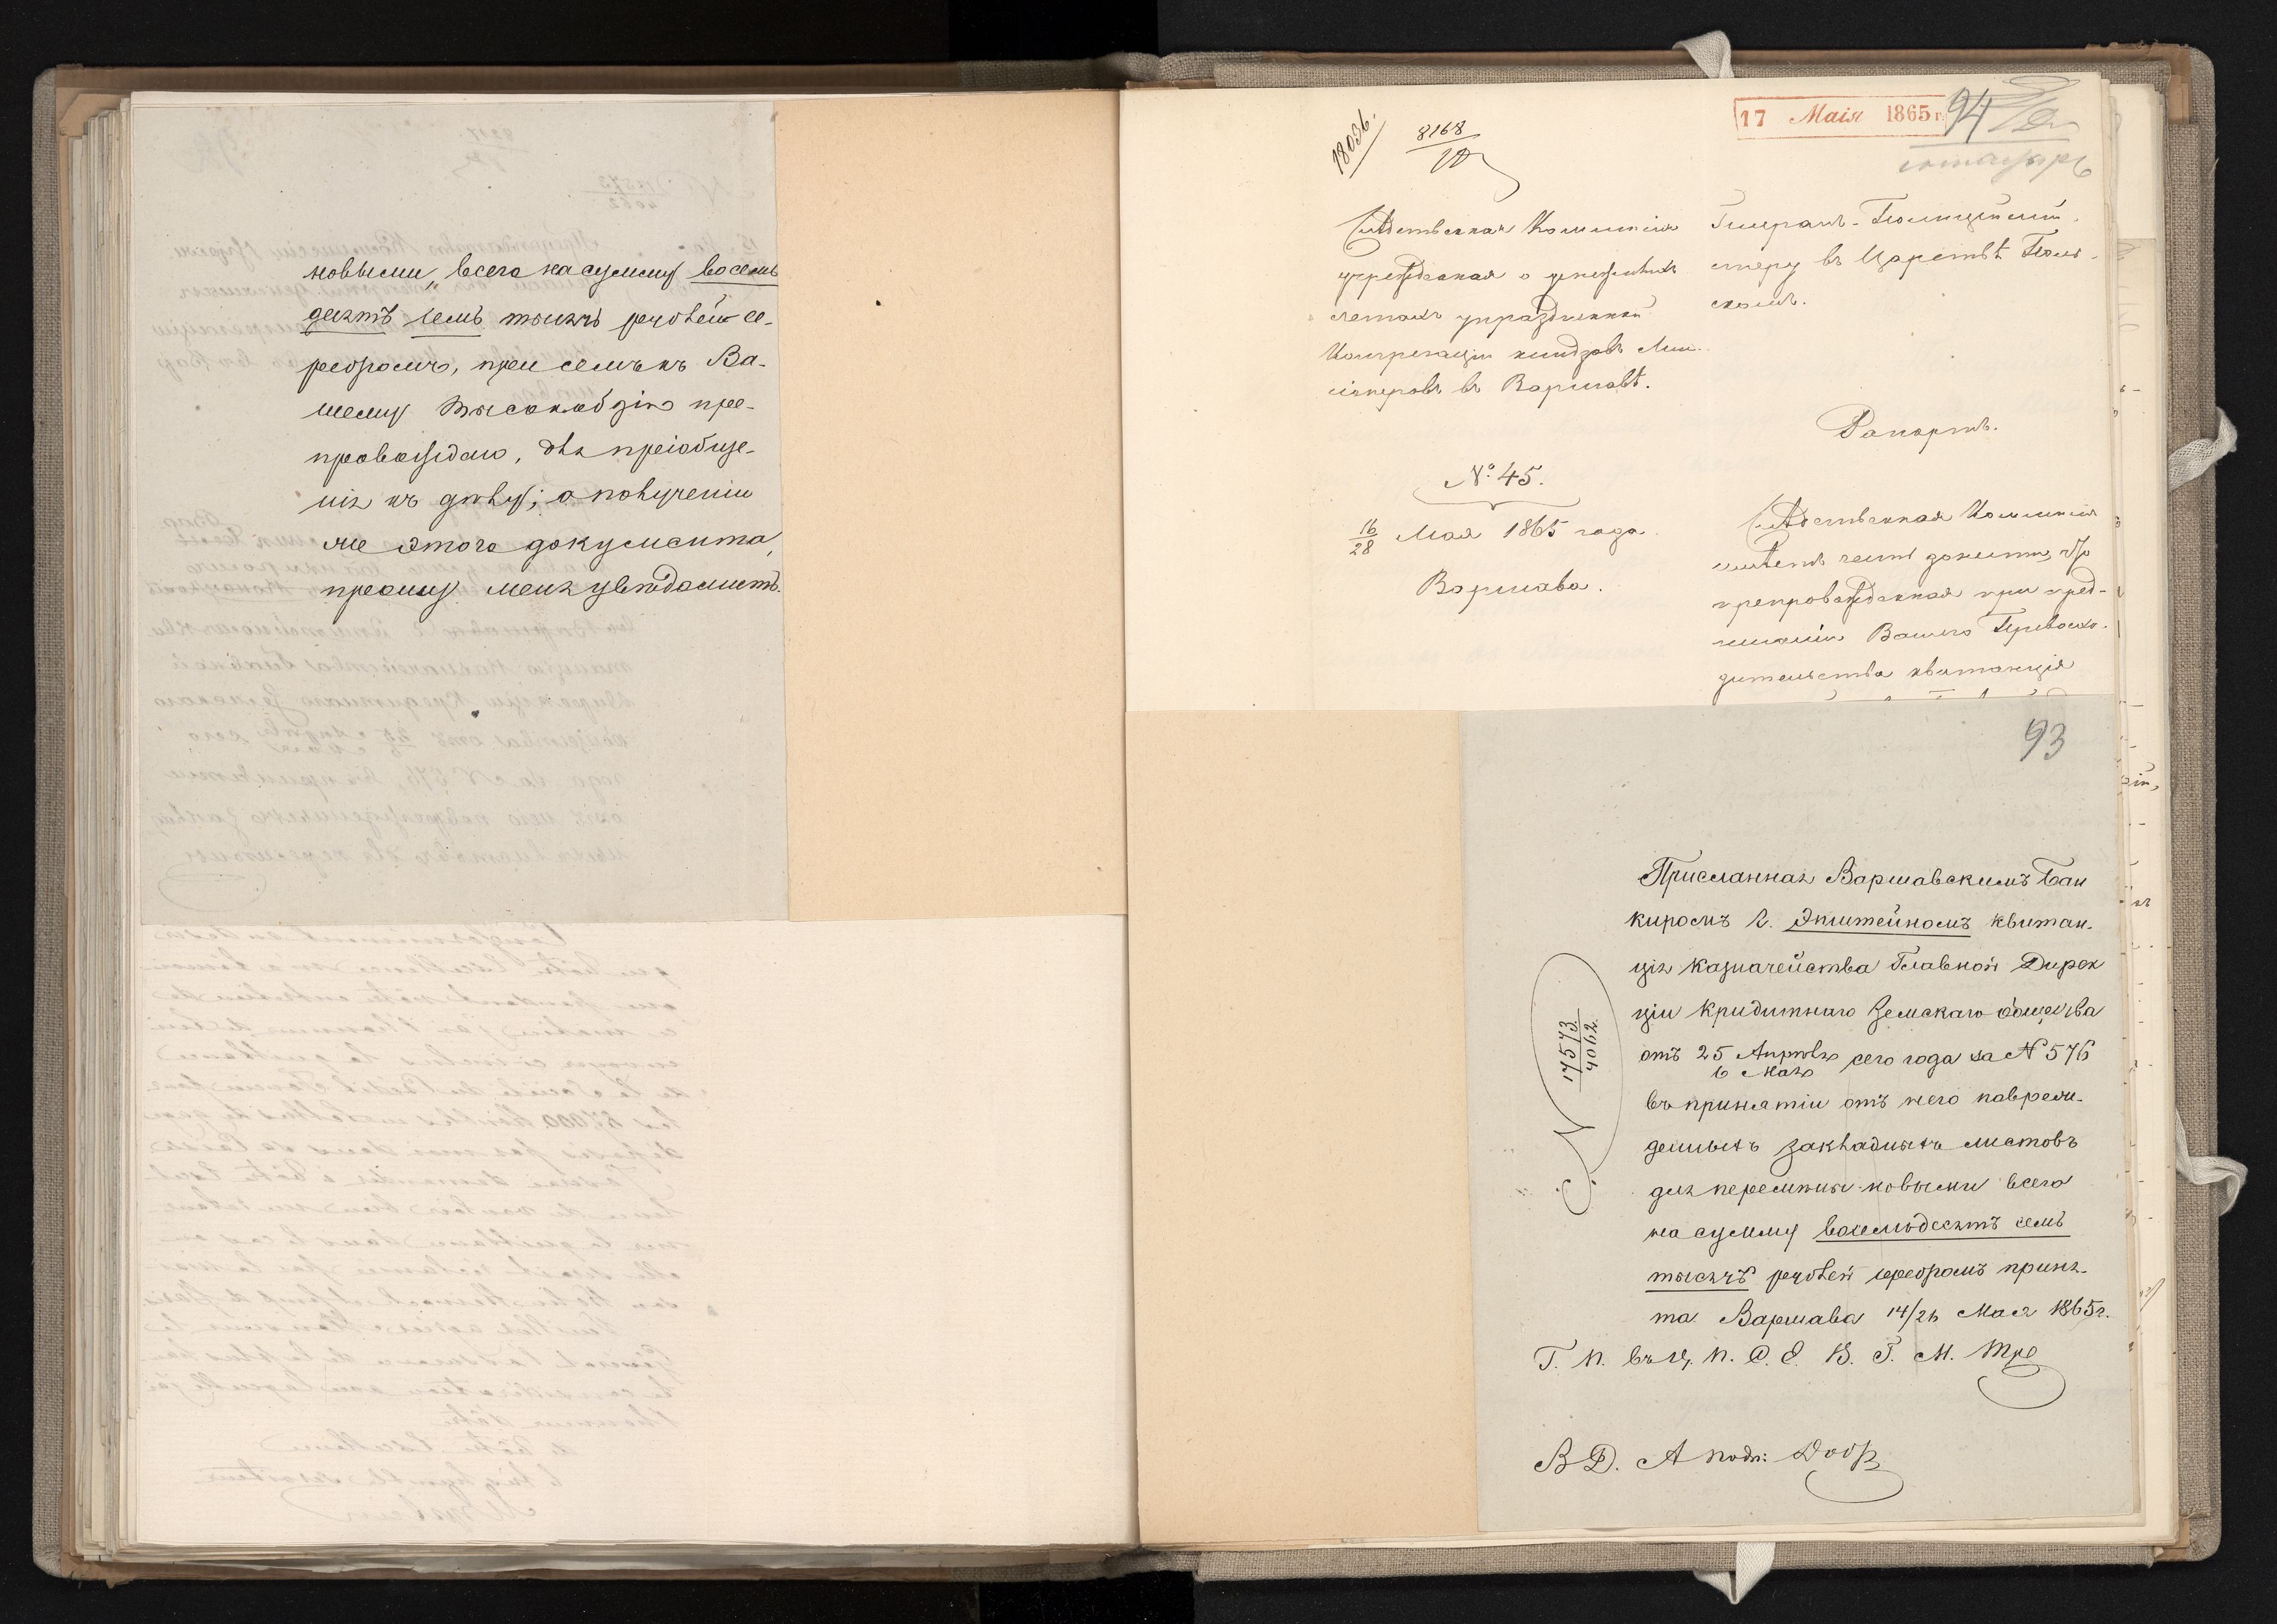 новыми „ всего на сумму восемь
десятъ семь тысячъ рублей се-
ребромъ, при семъ къ Ва-
шему Высокоблдію пре-
провождаю, для пріобще-
нія къ дѣлу; о полученіи
же этого документа,
прошу меня увѣдомить.
18036.
8168
17 Маія 1865 г.
94
Слѣдственная Коммисія
учрежденная о денежныхъ
счетахъ упраздненной
Конгрегаціи ксендзовъ Мис-
сіонеровъ въ Варшавѣ.
№ 45.
16/28 Мая 1865 года.
Варшава.
Генералъ-Полицеймей-
стеру въ Царствѣ Поль-
скомъ.
Рапортъ.
Слѣдственная Коммисія
имѣетъ честь донести, что
препровожденная при пред-
писаніи Вашего Превосхо-
дительства квитанція
93
Присланная Варшавскимъ Бан
киромъ г. Эпштейномъ квитан-
ція Казначейства Главной Дирек
ціи Кридитнаго Земскаго общества
отъ 25 Апрѣля сего года за № 576
6 Мая
въ принятіи отъ него повреж-
денныхъ закладныхъ листовъ
для перемѣны новыми всего
на сумму восемьдесятъ семь
тысячъ рублей серебромъ приня-
та Варшава 14/26 Мая 1865 г.
Г. П. въ Ц. П. С. Е. В. Г. М. Тре
В Д. А подп:
К. № 17573
4062